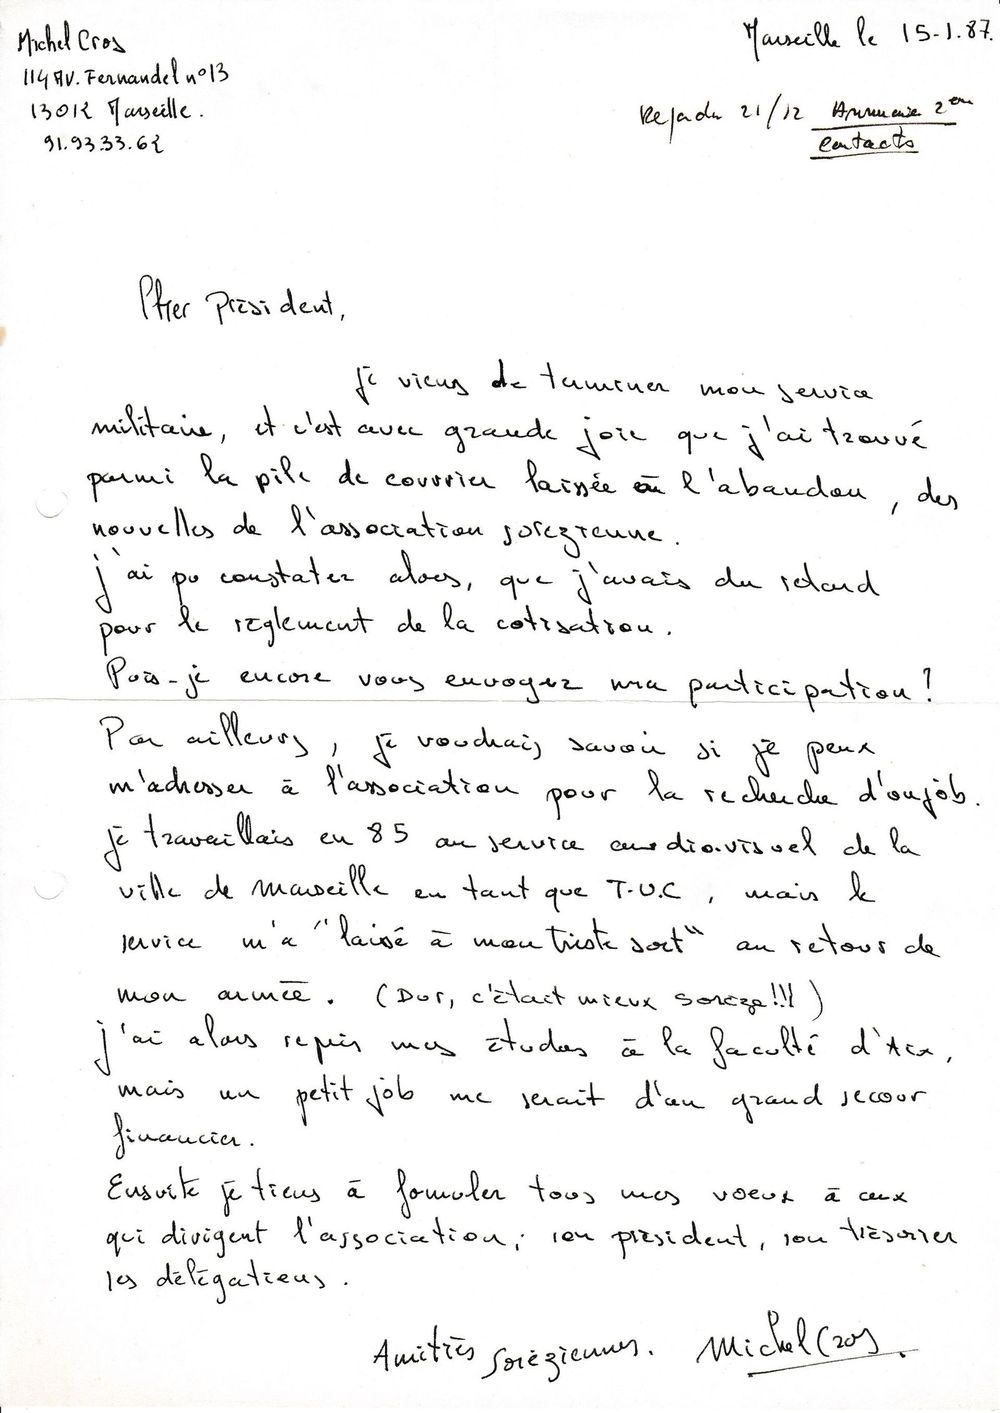 Michel Cros
114 AV. Fernandel n°13
13012 Marseille.
91.93.33.62
Marseille le 15-1.87.
21/12 Annuaire 2em
contacts
Cher Président,
je viens de terminer mon service
militaire, et c'est avec grande joie que j'ai trouvé
parmi la pile de courrier laissée à l'abandon, des
nouvelles de l'association sorézienne.
j'ai pu constater alors, que j'avais du retard
pour le règlement de la cotisation.
Puis-je encore vous envoyez ma participation?
Par ailleurs, je voudrais savoir si je peux
m'adresser à l'association pour la recherche d'un job.
je travaillais en 85 au service audio-visuel de la
ville de Marseille en tant que T.U.C, mais le
service m'a "laissé à mon triste sort" au retour de
mon armée. (Dur, c'était mieux Sorèze!!!)
j'ai alors repris mes études à la faculté d'Aix,
mais un petit job me serait d'un grand secour
financier.
Ensuite je tiens à formuler tous mes voeux à ceux
qui dirigent l'association; son président, son trésorier
les délégations.
Amitiés Soréziennes. Michel Cros.